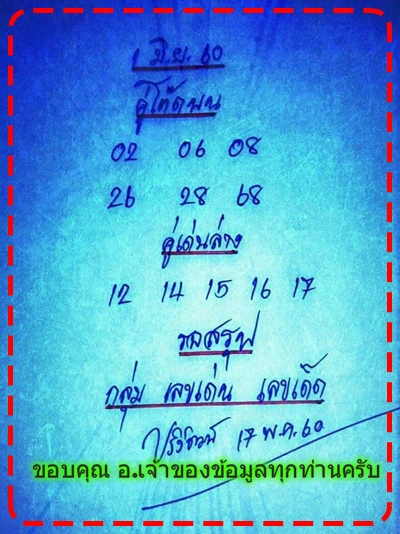 1 มิ.ย. 60
คู่โต๊ดบน
02 06 08
26 28 68
คู่เด่นล่าง
12 14 15 16 17
กลุ่ม เลขเด่น เลขเด็ด
17 พ.ค. 60
ขอบคุณ อ.เจ้าของข้อมูลทุกท่านครับ